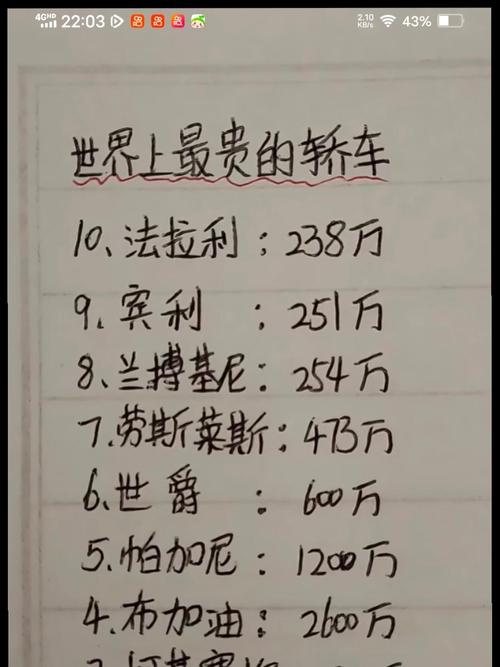 4GHD 22:03 2.10 KB/s 43%
世界上最贵的轿车
10、法拉利：238万
9、宾利：251万
8、兰搏基尼：254万
7、劳斯莱斯：473万
6、世爵：600万
5、帕加尼：1200万
4、布加油：2600万